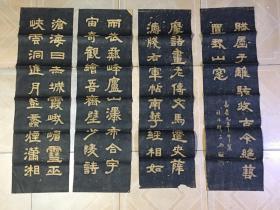 滄海日赤城霞峨嵋雪巫
峽雲洞庭月彭蠡煙瀟湘
雨武彝峰廬山瀑布合宇
宙奇觀繪吾齋壁少陵詩
摩詰畫左傳文馬遷史薛
濤牋右軍帖南華經相如
賦屈子離騷收古今絕藝
置我山窗